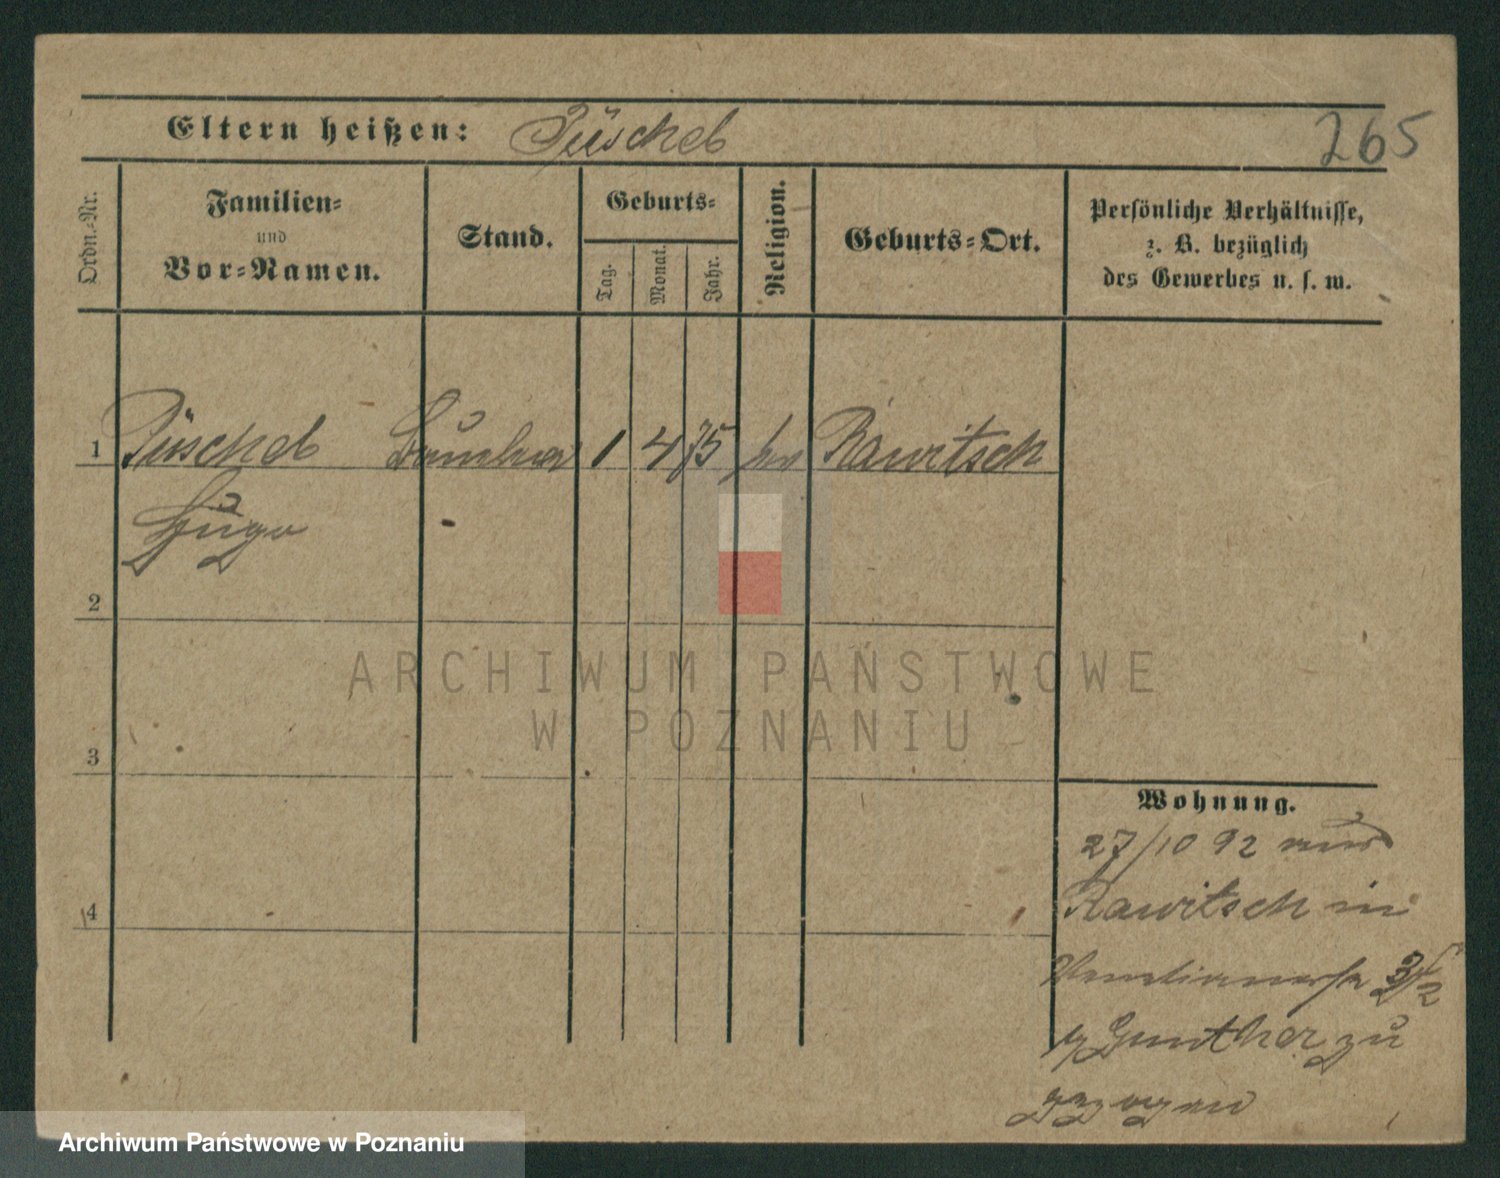 Eltern heißen: Püschel
265
Ordn.-Nr.
Familien-
und
Vor-Namen.
Stand.
Geburts-
Tag.
Monat.
Jahr.
Religion.
Geburts-Ort.
Persönliche Verhältnisse,
z. B. bezüglich
des Gewerbes u. s. w.
1 Püschel 1 4 75 Rawitsch
Hugo
2
3
4
Wohnung.
27/10 92 aus
Rawitsch in
Günther zu
gezogen
ARCHIWUM PAŃSTWOWE
W POZNANIU
Archiwum Państwowe w Poznaniu